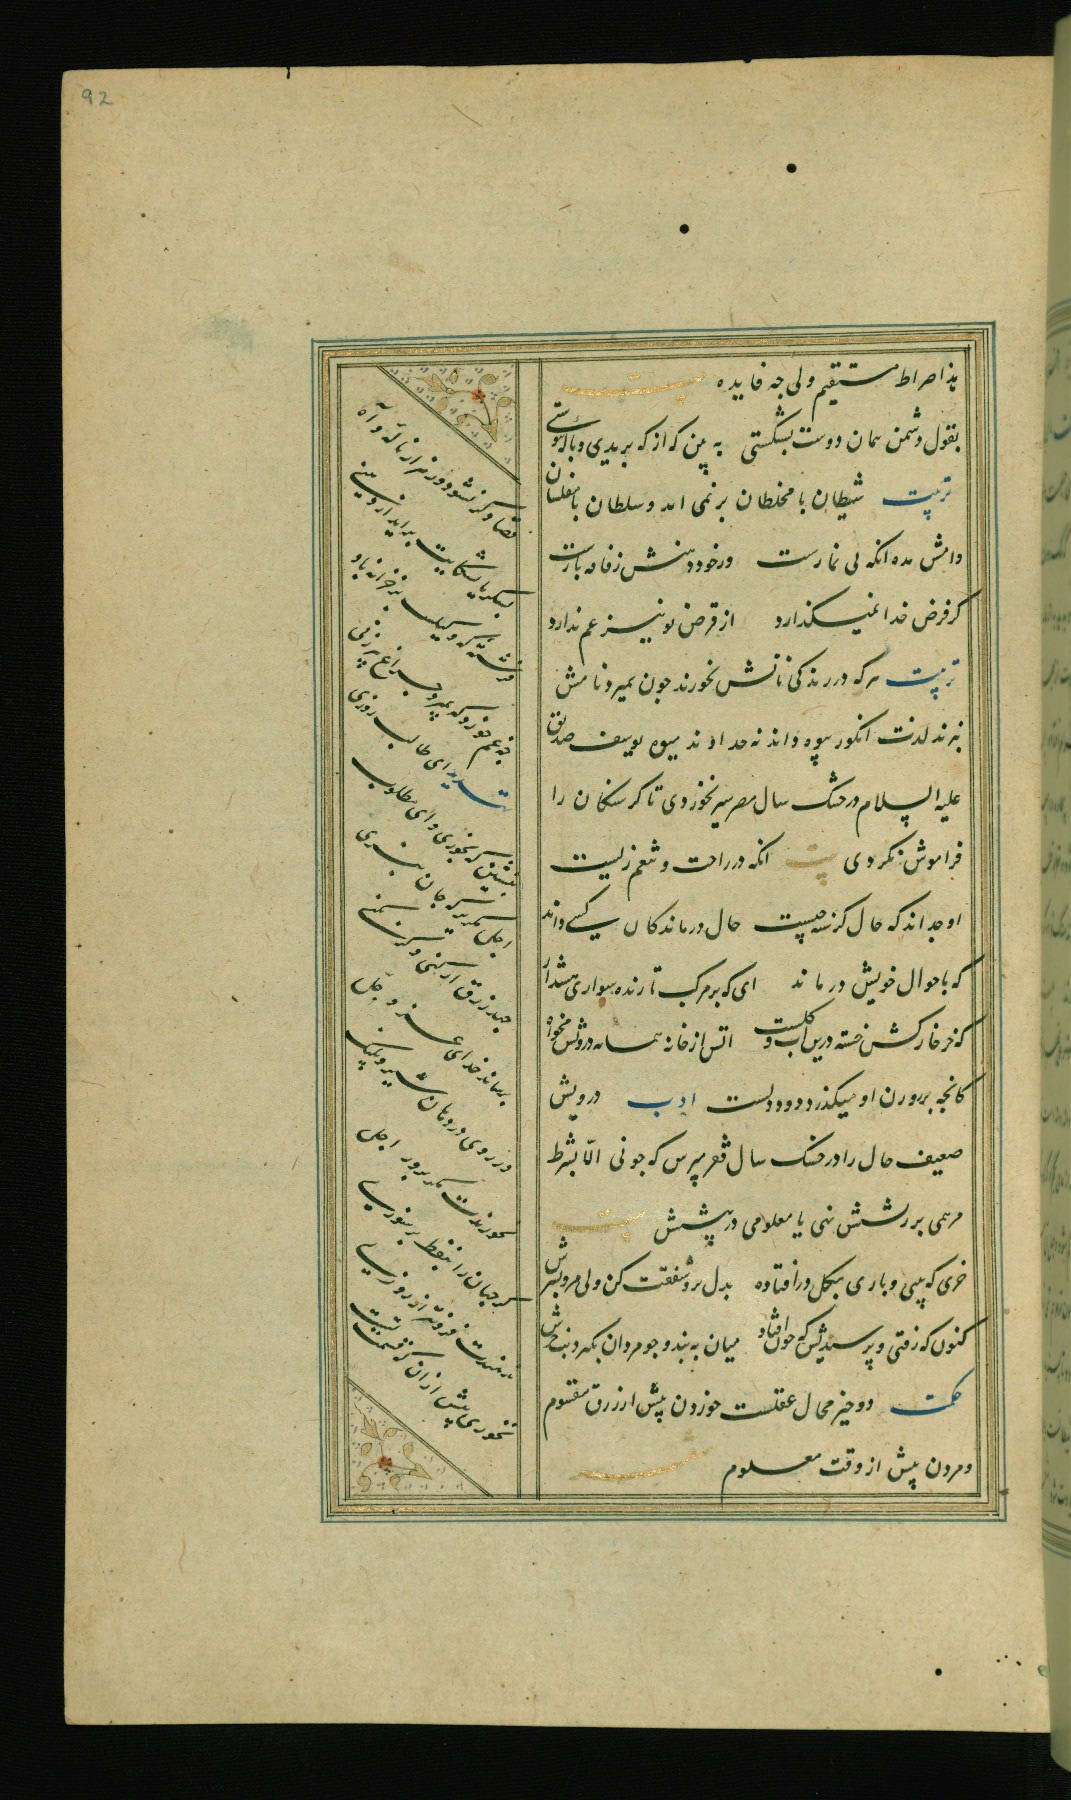 92
هذا صراط مستقیم ولی چه فایده بیت
بقول دشمن پیمان دوست بشکستی به بین که از که بریدی و با که پیوستی
تربیت شیطان با مخلصان بر نمی آید و سلطان با مفلسان
وامش مده انکه بی نمازست ورخود دهنش ز فاقه بازست
کو فرض خدا نمیکذارد از قرض تو نیز غم ندارد
تربیت هر که در زندکی نانش نخورند چون بمیرد نامش
نبرند لذت انکور بیوه داند نه خداوند میوه یوسف صدیق
علیه السلام در خشک سال مصر سیر نخوردی تا کرسنکان را
فراموش نکردی بیت انکه در راحت و تنعم زیست
او چداند که حال کرسنه چیست حال درماندکان کسی داند
که باحوال خویش در ماند ای که بر مرکب تازنده سواری هشدار
که خر خارکش خسته در آب و کلست اتش از خانه همسایه درویش مخواه
کانچه بر روزن او میکذرد دود دلست ادب درویش
ضعیف حال را در خشک سال مپرس که چونی الّا بشرط
مرهمی بر ریشش نهی یا معلومی در پیشش بیت
خری که بینی و باری بکل در افتاده بدل برو شفقت کن ولی مرو بسرش
کنون که رفتی و پرسیدیش که چون افتاد میان به بند و چو مردان بکیر دنب خرش
حکمت دو چیز محال عقلست خوردن پیش از رزق مقسوم
و مردن پیش از وقت معلوم شعر
قضا دکر نشود ور هزار ناله و آه
بشکر یا بشکایت براید از دهنی
فرشته که وکیلست بر خزانه باد
چه غم خورد که بمیرد چراغ پیرزنی
ای طالب روزی
بنشین که بخوری و ای مطلوب
اجل مرو که جان نبری
جهد رزق ار کنی و کر نکنی
برساند خدای عز و جل
ور روی در دهان شیر و پلنک
نخورندت مکر بروز اجل